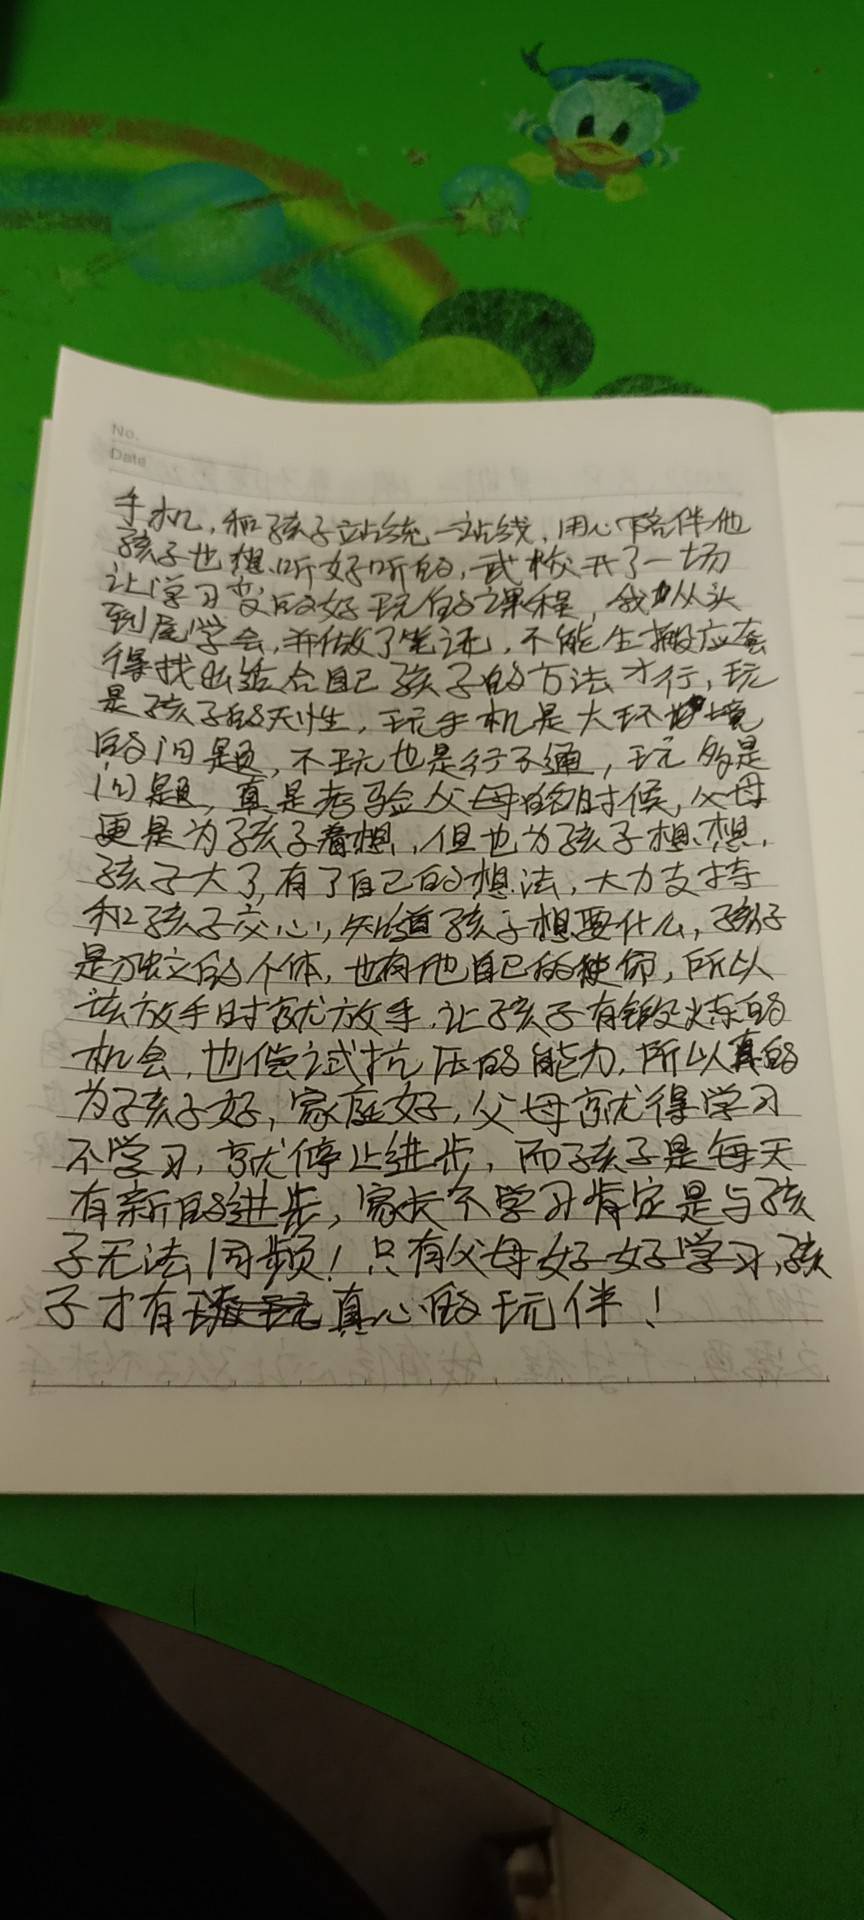 No.
Date
手机,和孩子站统一站线,用心陪伴他
孩子也想听好听的,武校开了一场
让学习变的好玩的课程,我从头
到尾学会,并做了笔记,不能生搬应套
得找出适合自己孩子的方法才行,玩
是孩子的天性,玩手机是大环境
的问题,不玩也是行不通,玩多是
问题,真是考验父母的时候,父母
更是为孩子着想,但也为孩子想想,
孩子大了,有了自己的想法,大力支持
和孩子交心,知道孩子想要什么,孩子
是独立的个体,也有他自己的使命,所以
该放手时就放手,让孩子有锻炼的
机会,也偿试抗压的能力,所以真的
为孩子好,家庭好,父母就得学习
不学习,就停止进步,而孩子是每天
有新的进步,家长不学习肯定是与孩
子无法同频!只有父母好好学习,孩
子才有真心的玩伴!